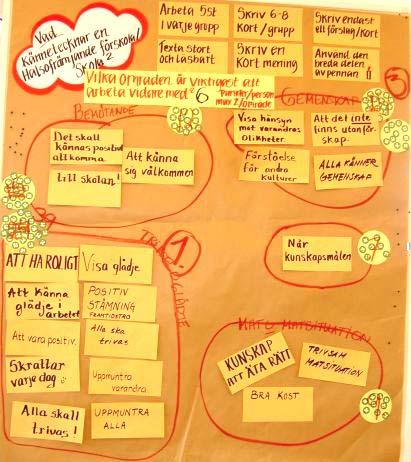 Vad
Kännetecknar en
Hälsofrämjande förskola/
Skola?
Arbeta 5st
i varje grupp
Skriv 6-8
Kort/grupp
Skriv endast
ett förslag/kort
Texta stort
och läsbart
Skriv en
Kort mening
Använd den
breda delen
av pennan
Vilka områden är viktigast att
arbeta vidare med? 6
Punkter/person
max 2/område
BEMÖTANDE
Det skall
kännas positivt
att komma
till skolan!
Att känna
sig välkommen
GEMENSKAP
3
Visa hänsyn
mot varandras
olikheter
Att det inte
finns utanför-
skap.
Förståelse
för andra
kulturer
ALLA KÄNNER
GEMENSKAP
39
1.
TRIVSEL GLÄDJE
ATT HA ROLIGT
Visa glädje
Att känna
glädje i
arbetet
POSITIV
STÄMNING
FRAMTIDSTRO
Att vara positiv.
Alla ska
trivas
Skrattar
varje dag
Uppmuntra
varandra
Alla skall
trivas!
UPPMUNTRA
ALLA
När
kunskapsmålen
MAT O MATSITUATION
KUNSKAP
ATT ÄTA RÄTT
TRIVSAM
MATSITUATION
BRA KOST